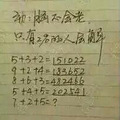 不会老
只有
的人会
5+3+2=151022
9+2+4=183652
8+6+3=482466
5+4+5=202541
7+2+5=?